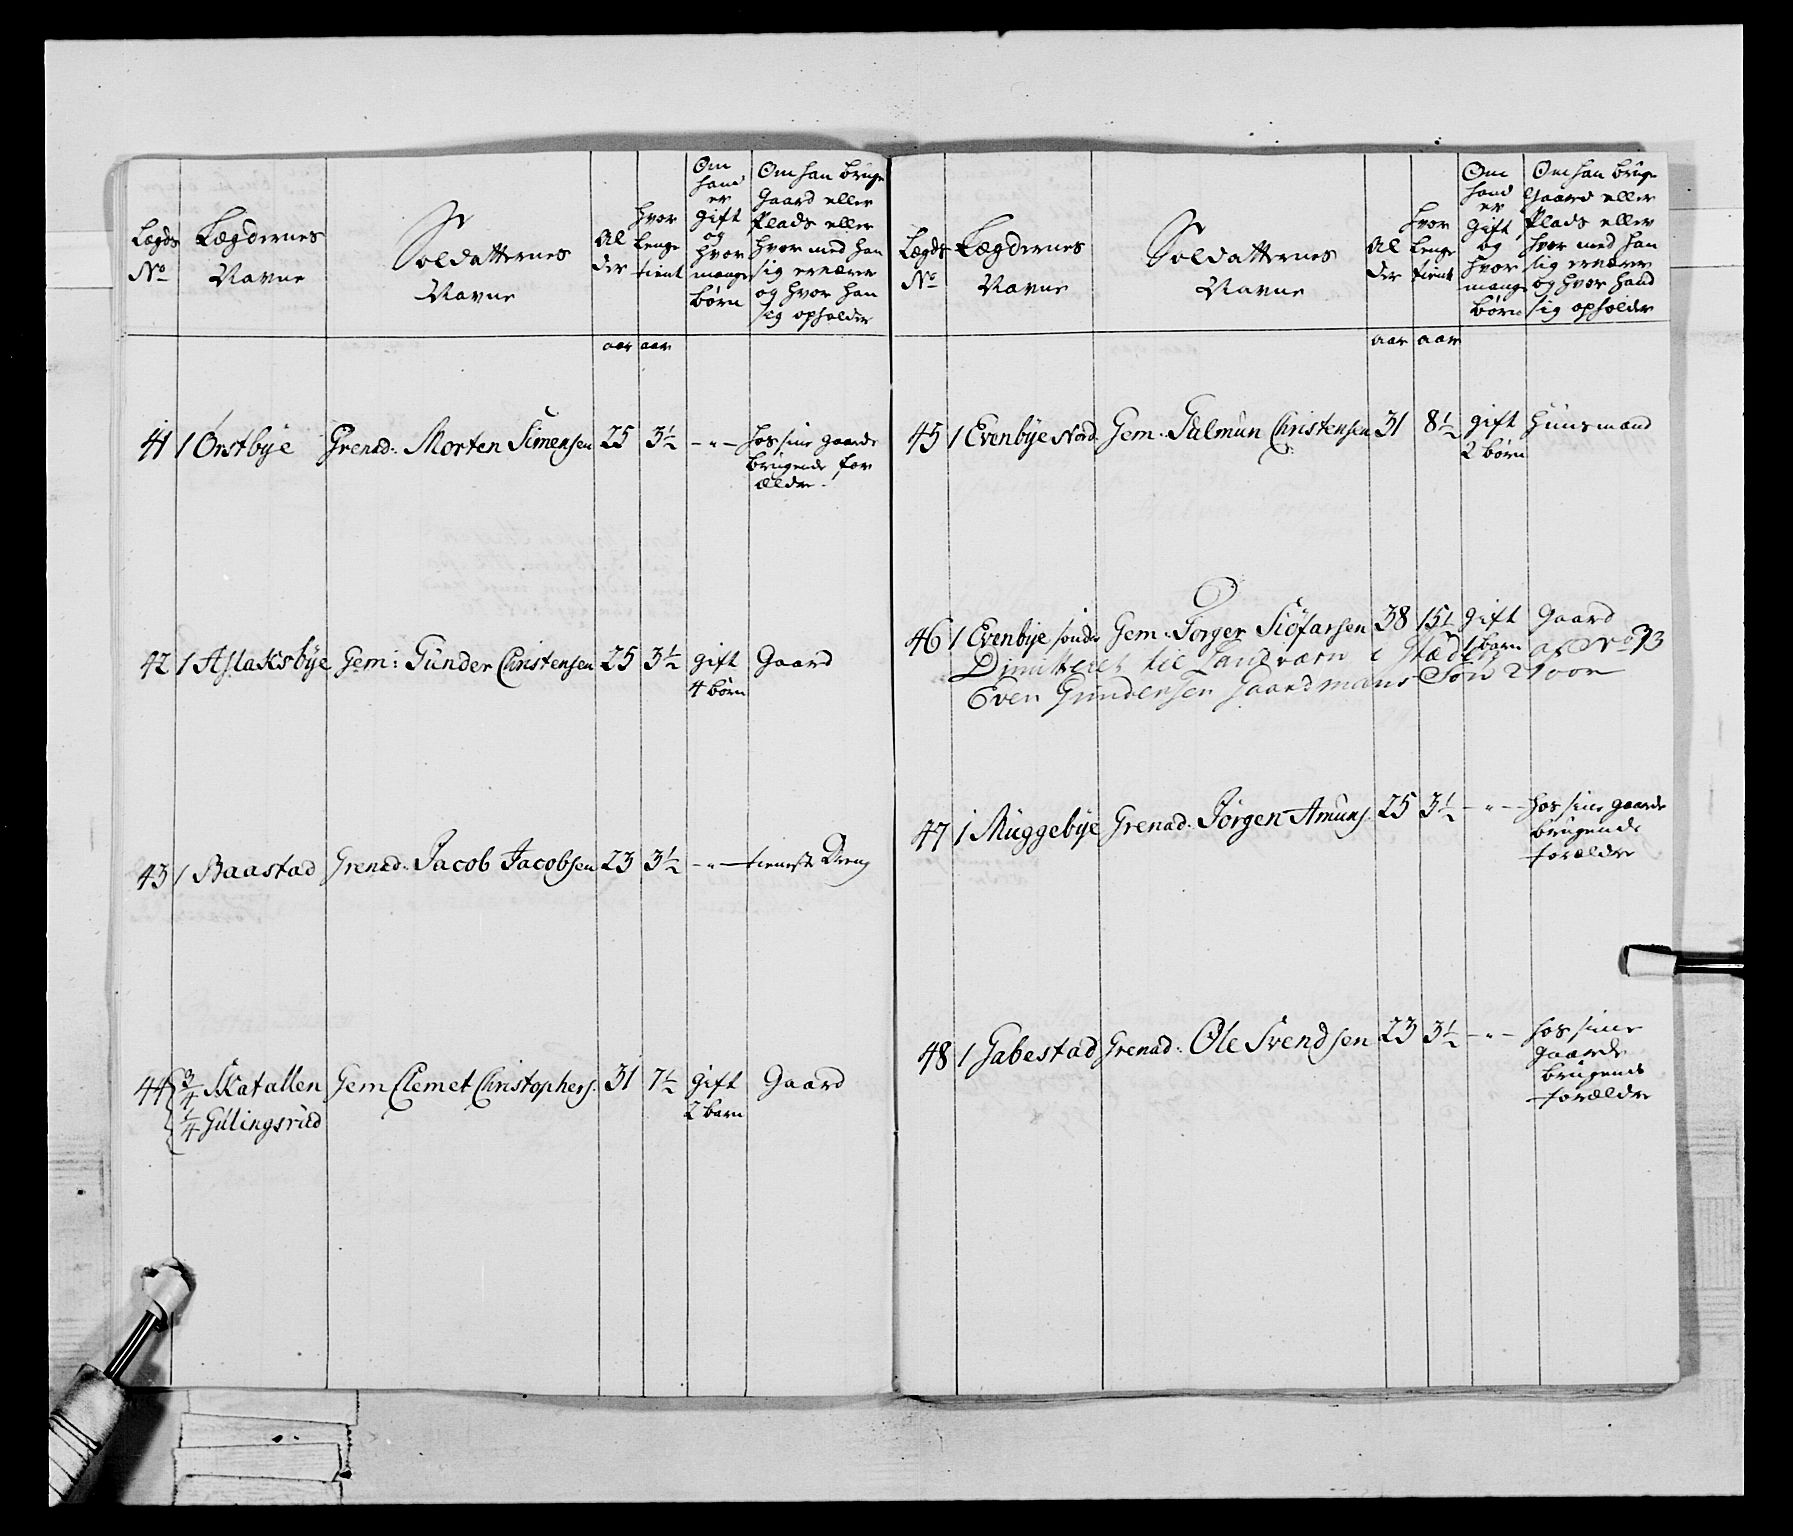 Lægds No
Lægdernes Navne
Soldatternes Navne
Al der
hvor lenge tient
Om hand er gift og hvor mange børn
Om han bruge Gaard eller Plads eller hvor med han sig ernærer og hvor han sig opholder
aar aar
41 1 Ørstbÿe Grenad: Morten Simensen 25 3½ - " - hos sine gaarde
brugende for
ældre.
42 1 Aslaksbÿe Gem: Gunder Christensen 25 3½ gift Gaard
4 børn
43 1 Baastad Grenad: Jacob Jacobsen 23 3½ - " - tieneste Dreng
44 3/4 Skatallen Gem Clemet Christophers. 31 7½ gift Gaard
1/4 Gulingsrud 2 barn
Lægds No
Lægdernes Navne
Soldatternes Navne
Al der
hvor lenge tient
Om hand er gift og hvor mange børn
Om han bruge Gaard eller Plads eller hvor med han sig ernærer og hvor hand sig opholder
aar aar
45 1 Evenbÿe Nord. Gem: Gulmun Christensen 31 8½ gift Huusmand
2 børn
46 1 Evenbÿe sønder Gem: Torger Siøfarsen 38 15½ gift Gaard
1 barn
Dimitteret til Landværn i stæden af No 73
Even Gundersen Gaardmans Søn 21 aar
47 1 Muggebÿe Grenad: Jørgen Amuns. 25 3½ - " - hos sine gaarde
brugende
forældre
48 1 Gabestad Grenad: Ole Svendsen 23 3½ - " - hos sine
gaarde
brugende
forældre